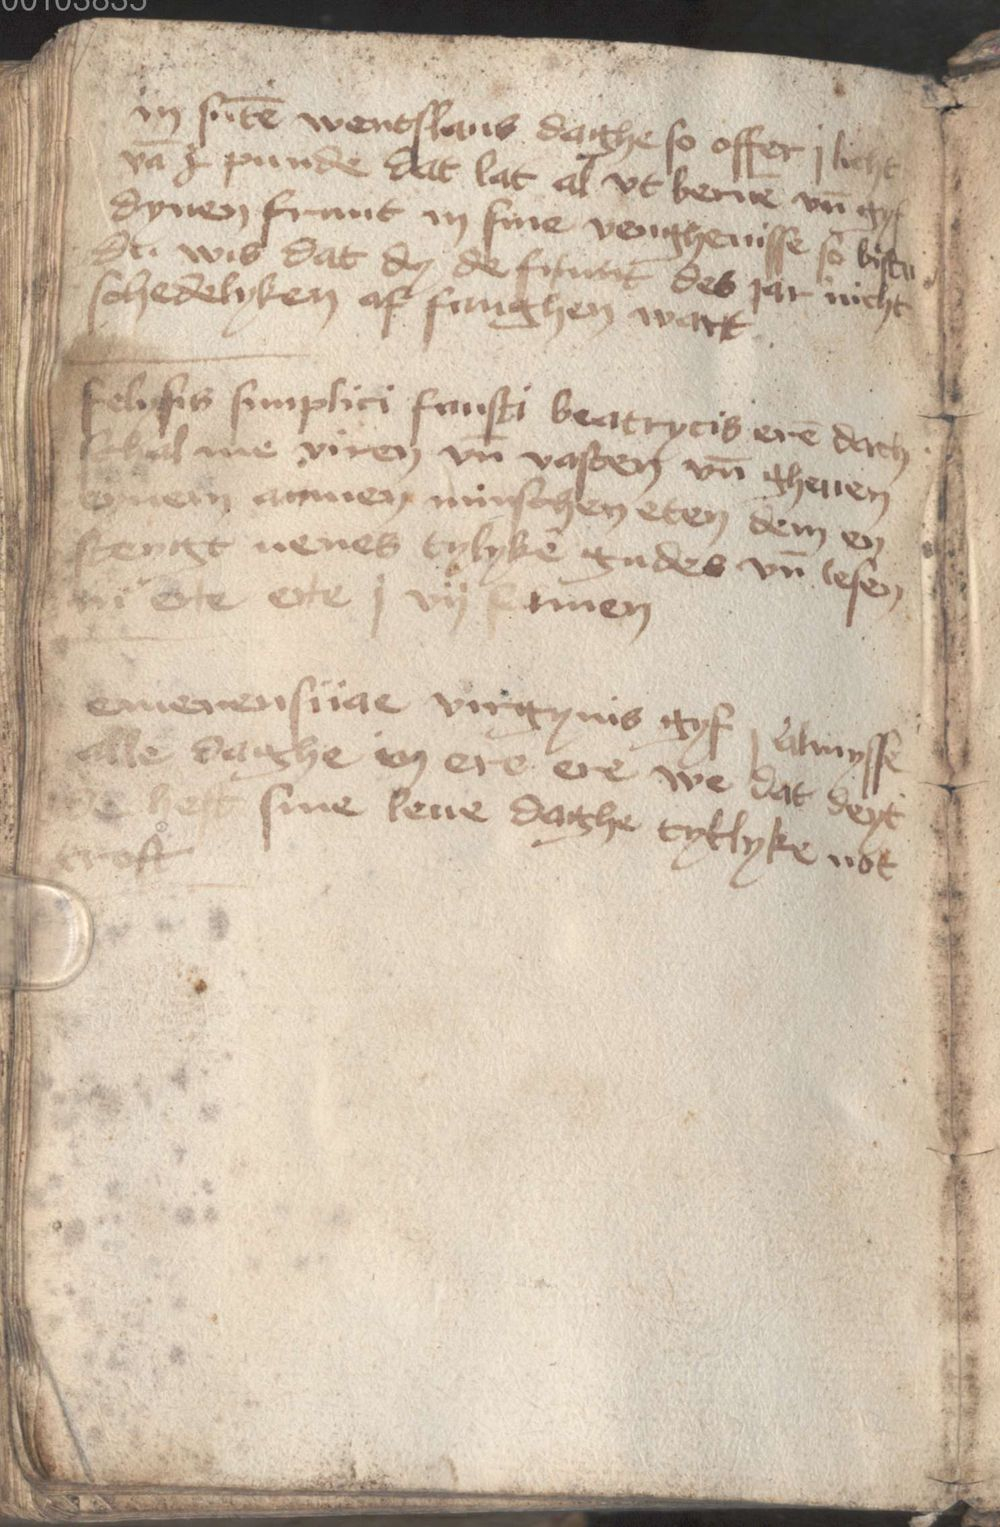 00103835
in sūte wentslaus daghe so offer j licht
vā j punde dat lat al vt bernē vn̄ gyf
dynen frunt in sine venghenisse so bistu
des wis dat dy de frunt des jar nicht
schedelyken af fanghen wart
felycis simplici fausti beatrycis erē dach
schal me viren vn̄ vasten vn̄ gheuen
einem armen minschen eten dem en
steruet nenes tylykē gudes vn̄ lesen
in ere ere j vij
emerensiiae virgynis gyf j almysse
alle daghe in ere ere we dat deyt
de heft sine leue daghe tytlyke not
troft